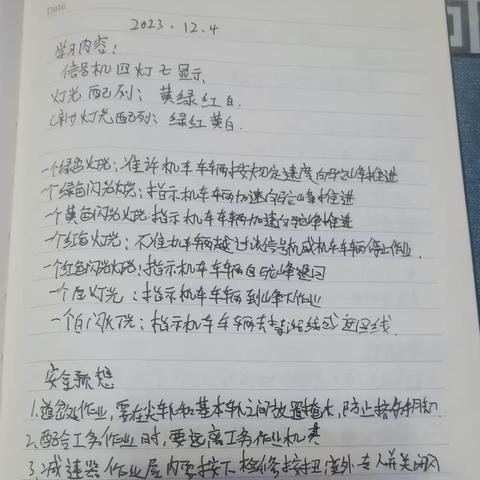 Date
2023.12.4
学习内容:
信号机四灯七显示.
灯光配列: 黄绿红白.
灯光配列: 绿红黄白.
一个绿色灯光: 准许机车车辆按规定速度向驼峰推进
一个绿色闪光灯光: 指示机车车辆加速向驼峰推进
一个黄色闪光灯光: 指示机车车辆加速向驼峰推进
一个红色灯光: 不准机车车辆越过该信号机或机车车辆停止作业.
一个红色闪光灯光: 指示机车车辆自驼峰退回
一个白灯光: 指示机车车辆到峰下作业
一个白闪灯光: 指示机车车辆去禁溜线或迂回线.
安全预想
1.道岔作业,要在尖轨和基本轨之间放置木,防止挤伤
2.配合工务作业时,要远离工务作业机具
3.减速器作业屋内要按下检修按扭室外专人并关闭